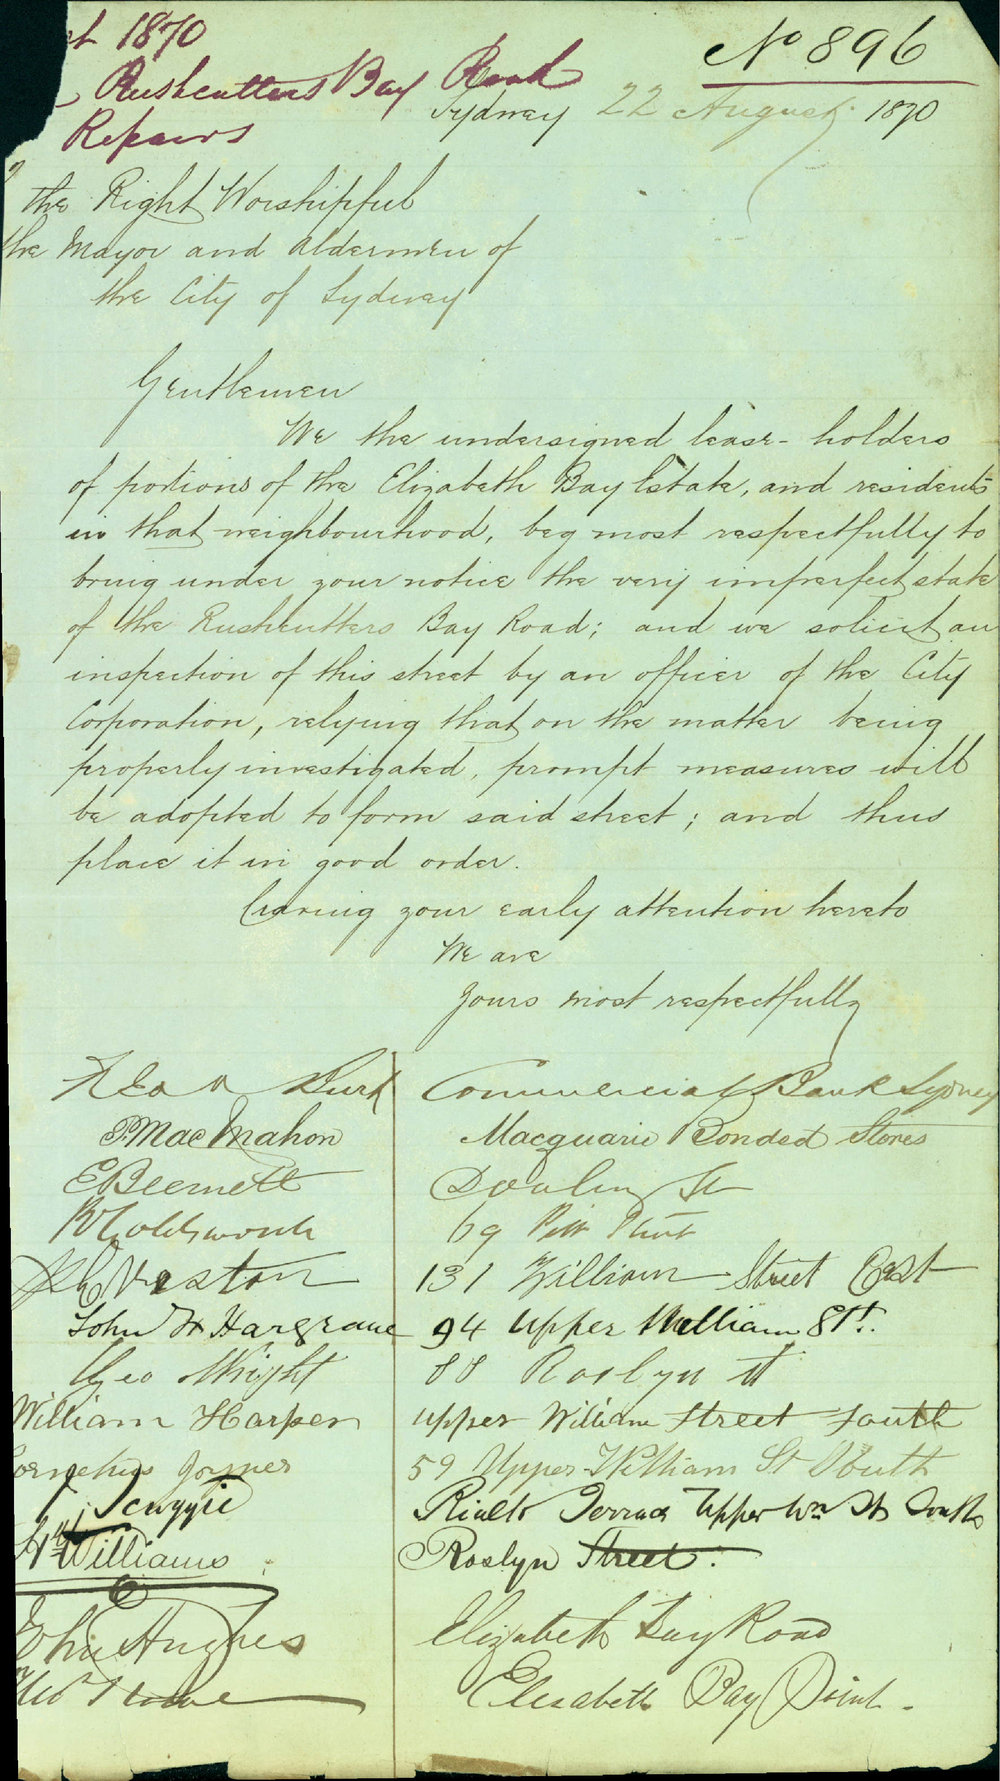 1870
No 896
Rushcutters Bay Road
Repairs
Sydney 22 August 1870
the Right Worshipful
the Mayor and Aldermen of
the City of Sydney
Gentlemen
We the undersigned lease-holders
of portions of the Elizabeth Bay Estate, and residents
in that neighbourhood, beg most respectfully to
bring under your notice the very imperfect state
of the Rushcutters Bay Road; and we solicit an
inspection of this street by an officer of the City
Corporation, relying that on the matter being
properly investigated, prompt measures will
be adopted to form said street; and thus
place it in good order.
Craving your early attention hereto
We are
Yours most respectfully
Commercial Bank Sydney
P. MacMahon Macquarie Bonded Stores
Dowling St
69 Pitt Street
131 William Street East
John F Hargrave 94 Upper William St.
Geo Wright 88 Roslyn St
William Harper Upper William Street South
Joyner 59 Upper William St South
Scuggie Rialto Terrace Upper Wm St South
Williams Roslyn Street.
John Hughes Elizabeth Bay Road
Elizabeth Bay Point.